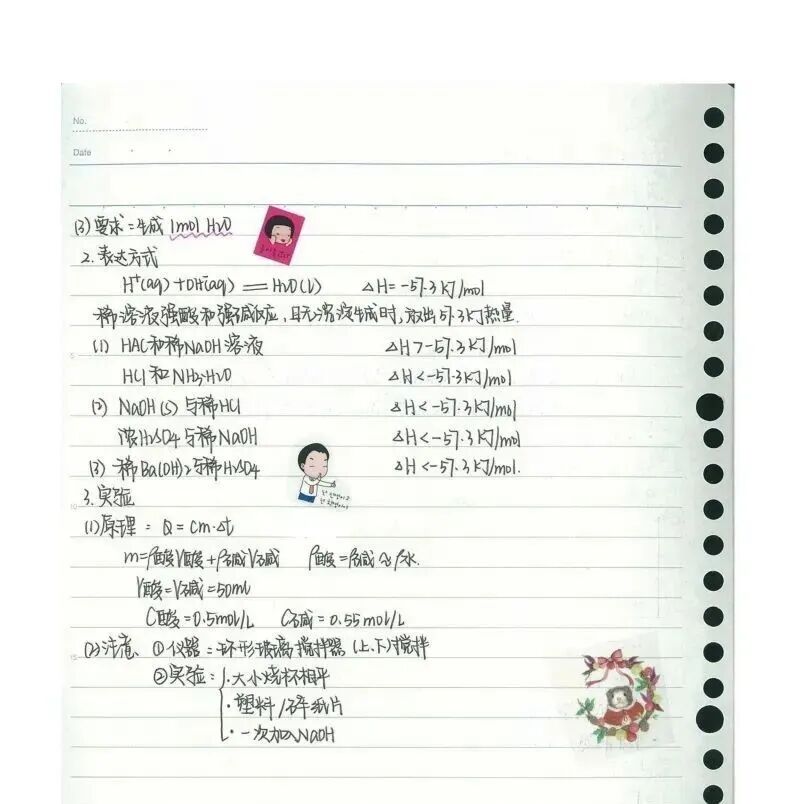 No.
Date
(3) 要求=生成 1mol H₂O
2.表达方式
H⁺(aq) + OH⁻(aq) == H₂O(l) △H=-57.3KJ/mol
稀溶液强酸和强碱反应,且无溶液生成时,放出57.3KJ热量.
(1) HAC和稀NaOH溶液 △H>-57.3KJ/mol
HCl和NH₃·H₂O △H<-57.3KJ/mol
(2) NaOH(s)与稀HCl △H<-57.3KJ/mol
浓H₂SO₄与稀NaOH △H<-57.3KJ/mol
(3) 稀Ba(OH)₂与稀H₂SO₄ △H<-57.3KJ/mol.
3.实验
(1)原理: Q=cm·△t
m=ρ酸V酸+ρ碱V碱 ρ酸=ρ碱≈ρ水.
V酸=V碱=50ml
C酸=0.5mol/L C碱=0.55mol/L
(2)注意、①仪器:环形玻璃搅拌器(上、下)搅拌
②实验:·大小烧杯相平
·塑料/碎纸片
·一次加入NaOH
5
10
15